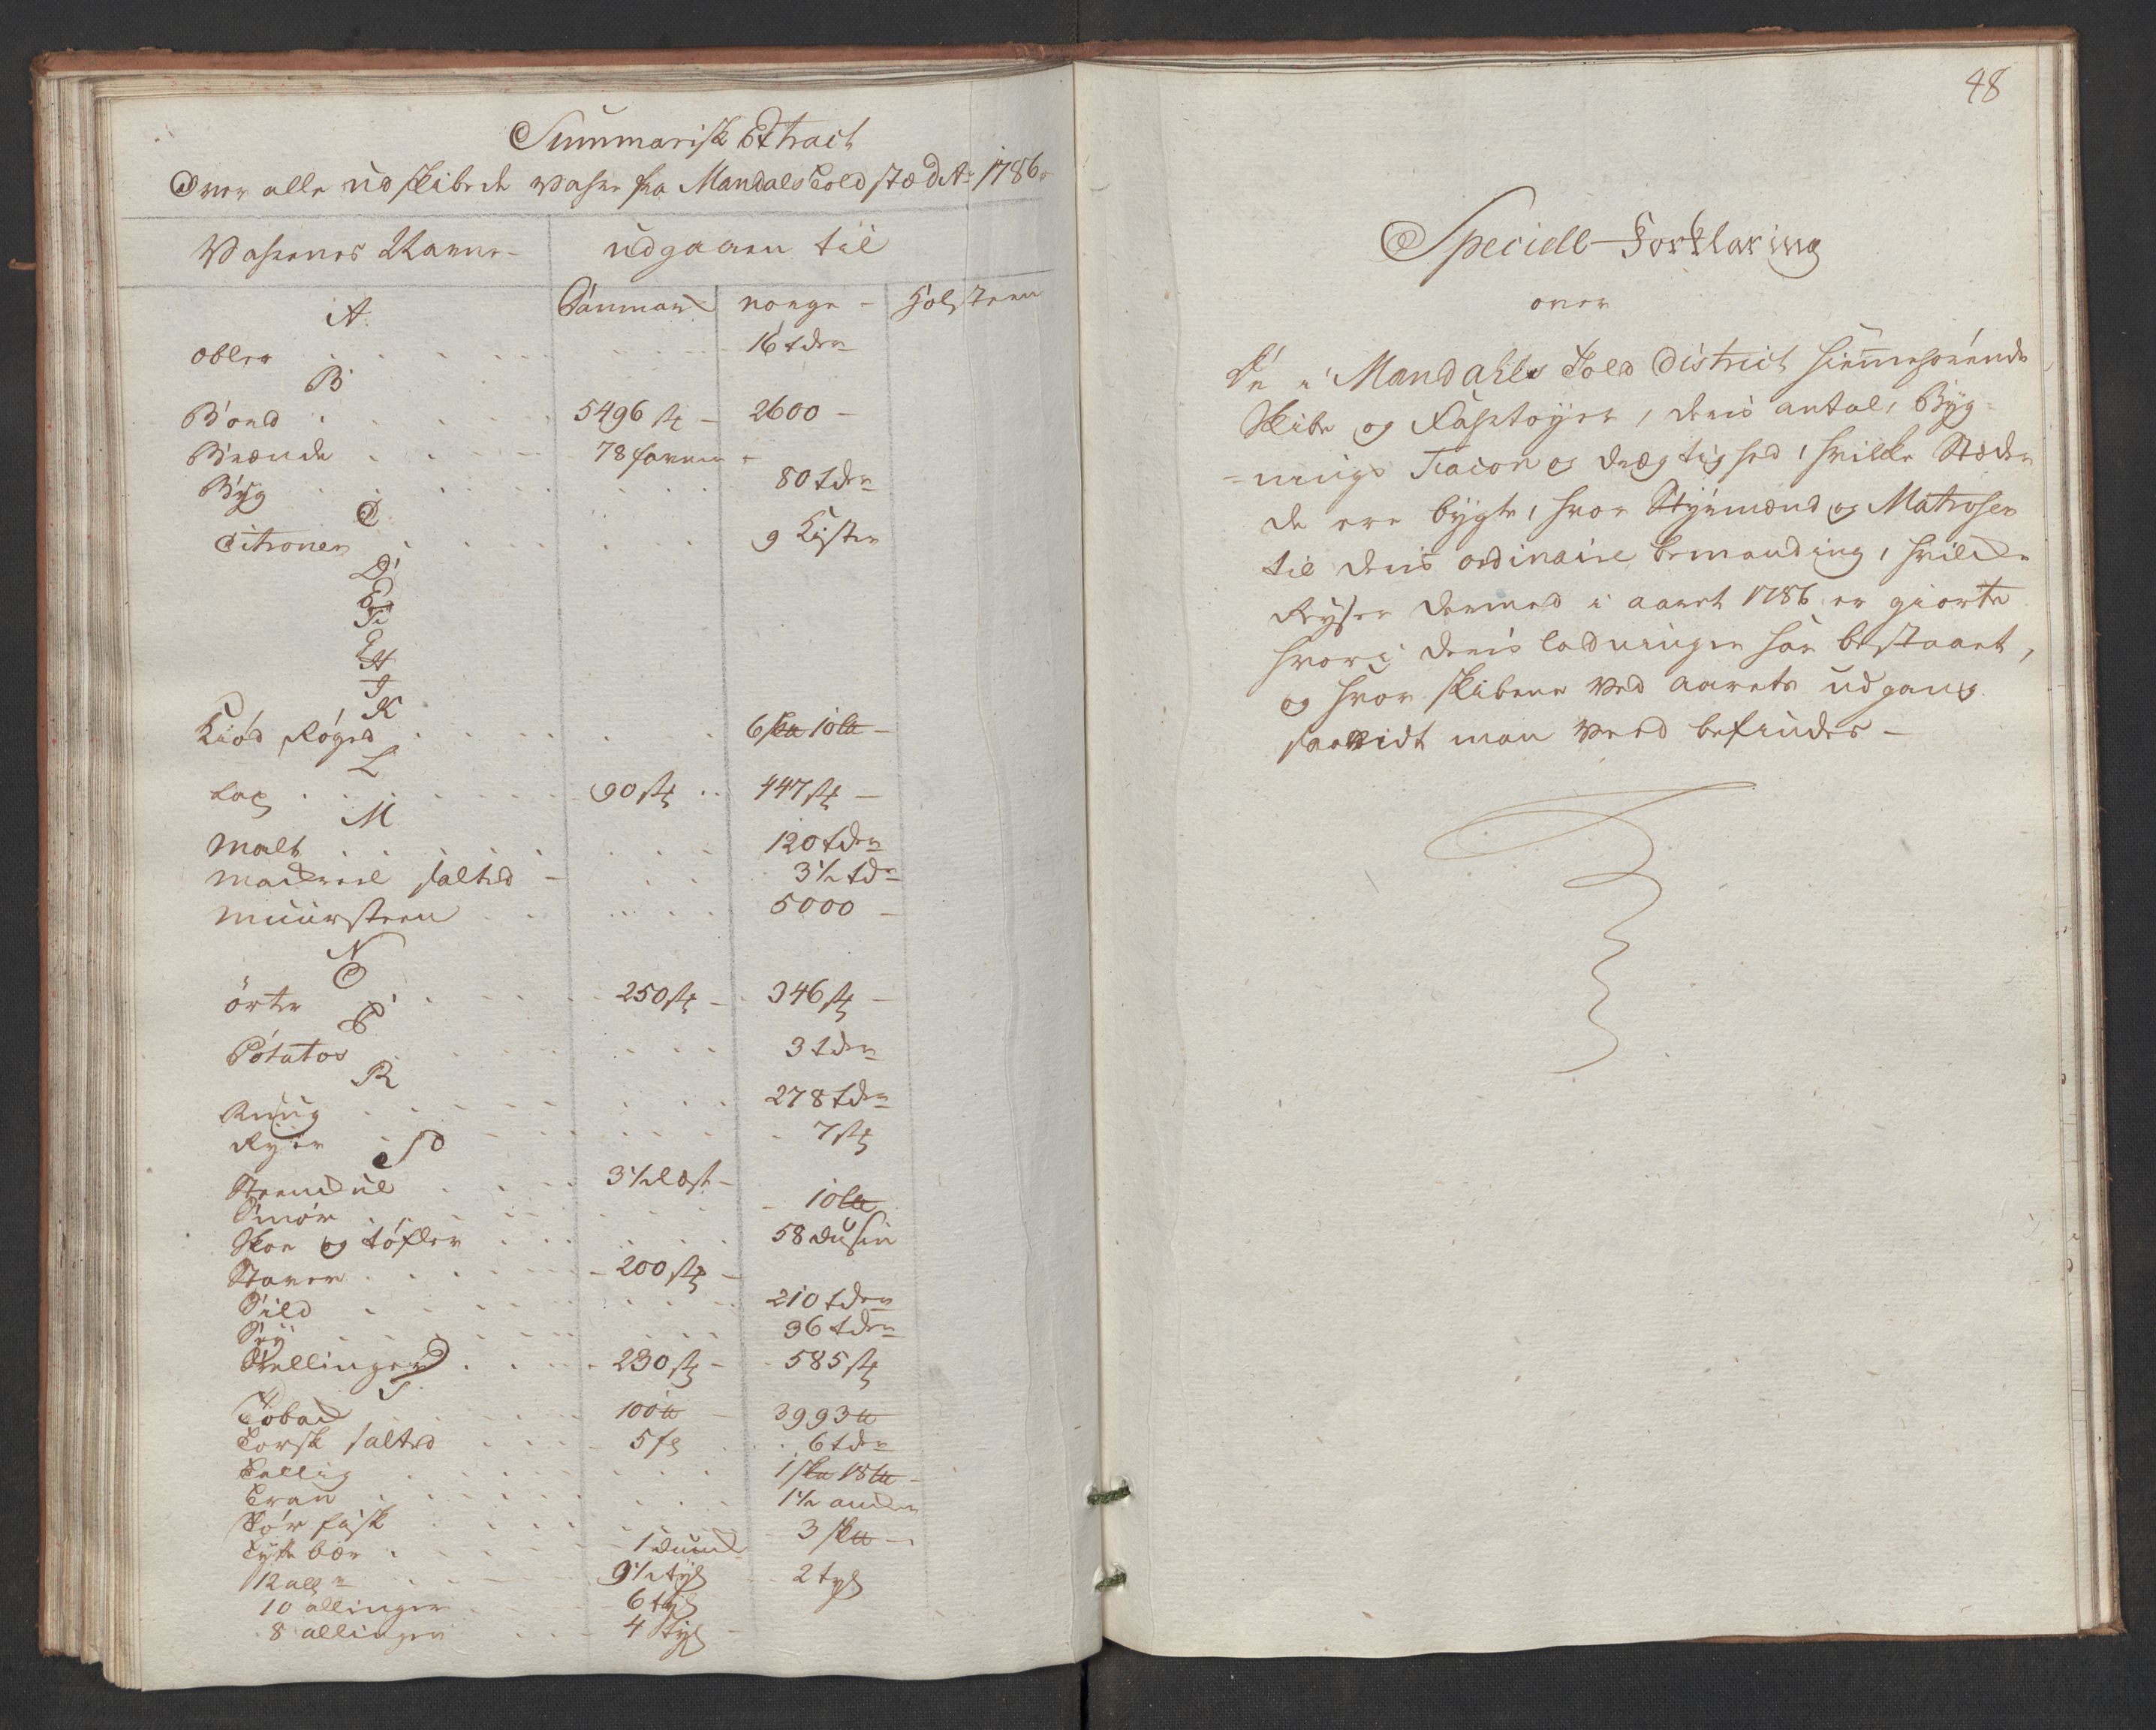 Summarisk Extract
Over alle udskibede Vahre fra Mandals Told stæd Ao 1786.
Vahrenes Navne - udgaaen til
Danmark norge - Holsteen
A.
Æbler 16 tdr
B
Bord 5496 st - 2600 -
Brænde 78 favne -
Byg 80 tdr
C
Citroner 9 Kister
D
E
F
G
H
I
K
Kiød Røged 6 sk℔ 10 l℔ -
L
Lax 90 st 447 st -
M
Malt 120 tdr
Mackreel salted - 3½ td
Muursteen 5000 -
N
O
Orter 250 st - 346 st -
P
Potatos 3 tdr
R
Rug 278 tdr
Ryer 7 st
S
Steenkul 3½ læst -
Smør 10 l℔
Skoe og tøfler 58 dusin
Staver 200 st -
Sild 210 tdr
Sey 36 tdr
Stellinger 230 st - 585 st
T
Tobak 100 ℔ - 3993 ℔
Torsk salted 5 f 6 tdr
Tallig 1 sk℔ 18 l℔ -
Tran 1½ anker
Tør fisk 3 sk℔ -
Tytte bær 1 dunk
12 all 9½ tyl 2 tyl
10 allinger 6 tyl
8 allinger 4 tyl -
48
Speciell Forklaring
over
De i Mandahls Told District hiemmehørende
Skibe og Fahrtøyer, deris antal, Byg-
-nings Facion og drægtighed, hvilke Stæder
de ere bygte, hvor Styrmænd og Matroser
til deris ordinaire bemanding, hvilke
Reyser dermed i aaret 1786 er giorte
hvori deris ladninger har bestaaet,
og hvor skibene ved aarets udgang
saavidt man veed befindes -